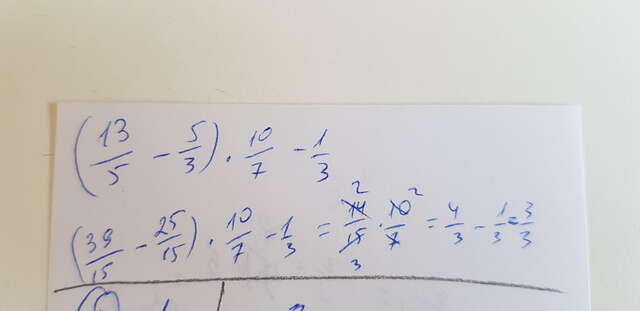 (13/5 - 5/3) · 10/7 - 1/3
(39/15 - 25/15) · 10/7 - 1/3 = 14/15 2/3 · 10/7 2 = 4/3 - 1/3 = 3/3